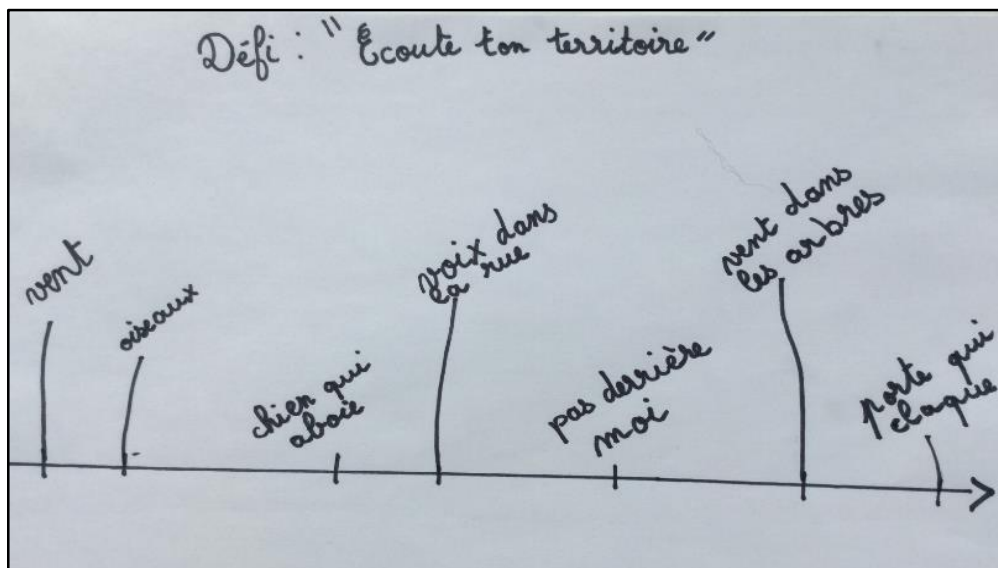 Défi : "Écoute ton territoire"
vent
oiseaux
chien qui
aboie
voix dans
la rue
pas derrière
moi
vent dans
les arbres
porte qui
claque